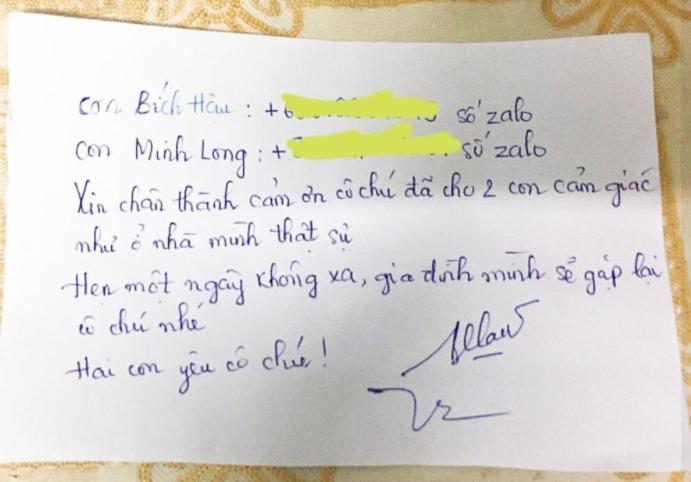 Con Bích Hâu : +6 số zalo
Con Minh Long : + số zalo
Xin chân thành cảm ơn cô chú đã cho 2 con cảm giác
như ở nhà mình thật sự
Hẹn một ngày không xa, gia đình mình sẽ gặp lại
cô chú nhé
Hai con yêu cô chú !